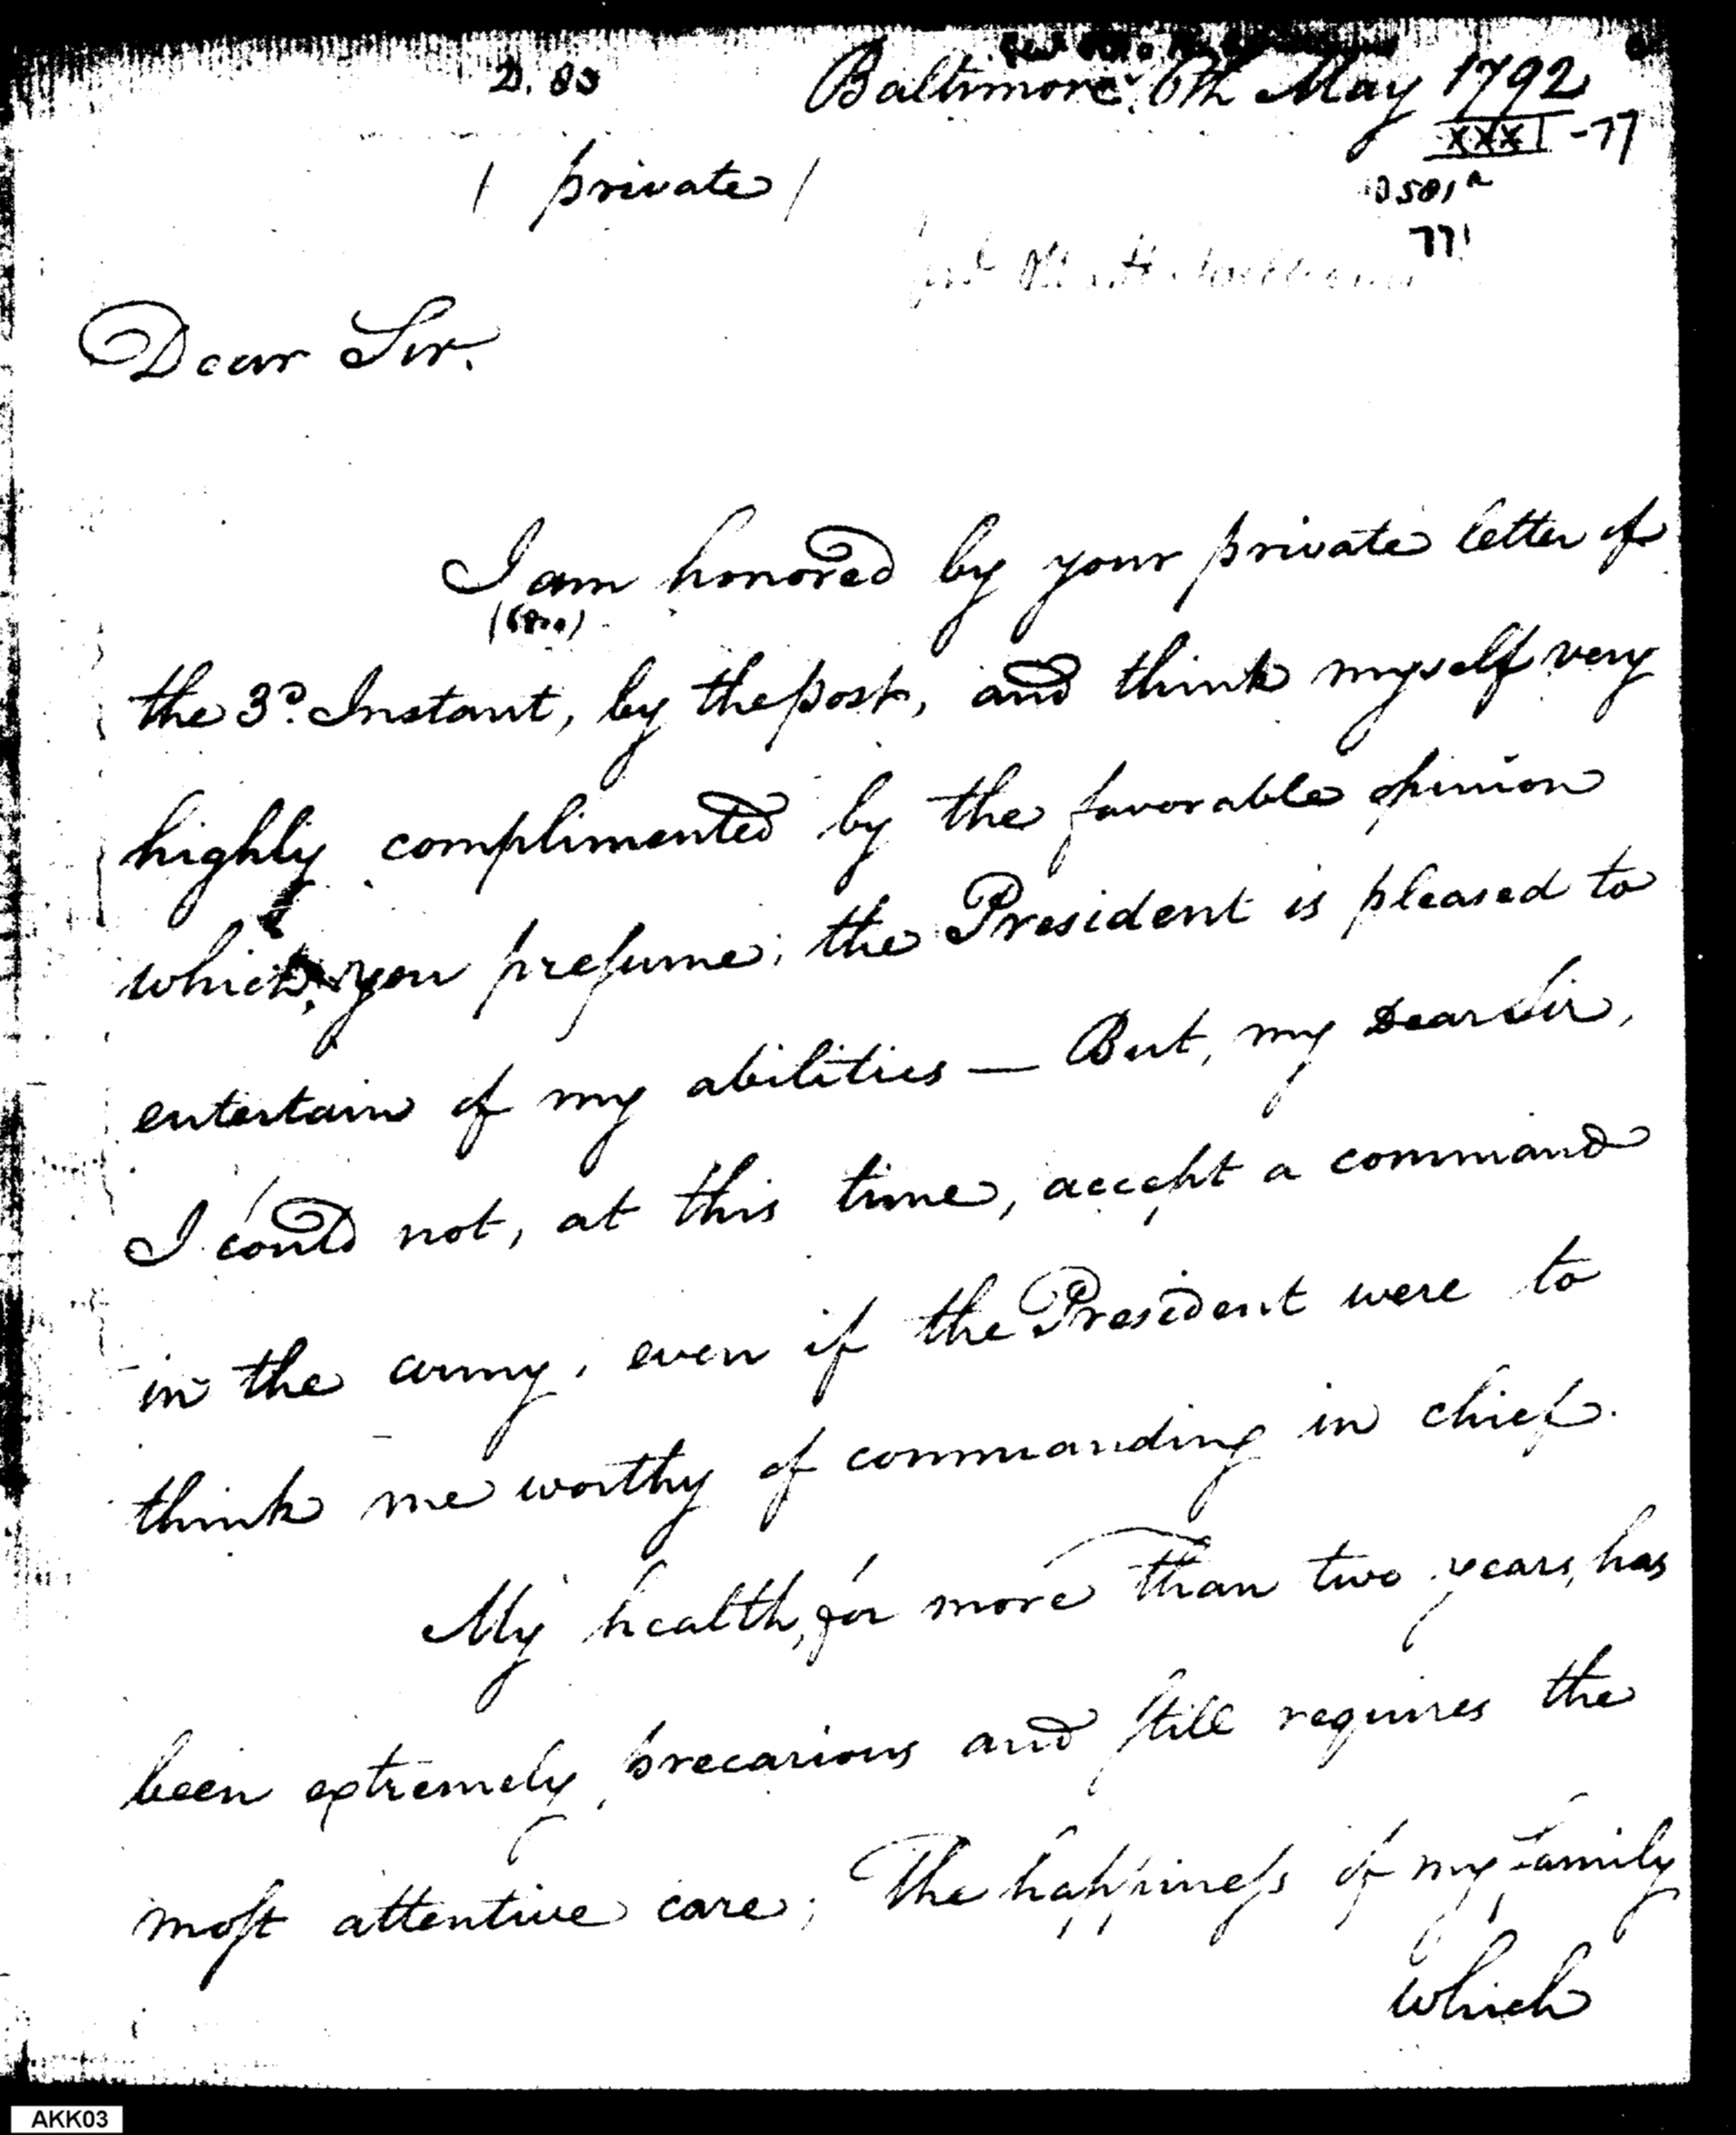 D. 83
Baltimore 6th May 1792
XXXI -77
/ private /
77
Dear Sir.
I am honored by your private letter of
the 3d. Instant, by the post, and think myself very
highly complimented by the favorable opinion
which, you preſume, the President is pleased to
entertain of my abilities — But, my Dear Sir,
I could not, at this time, accept a command
in the army, even if the President were to
think me worthy of commanding in chief.
My health, for more than two years, has
been extremely precarious and ſtill requires the
moſt attentive care; The happineſs of my Family
which
AKK03